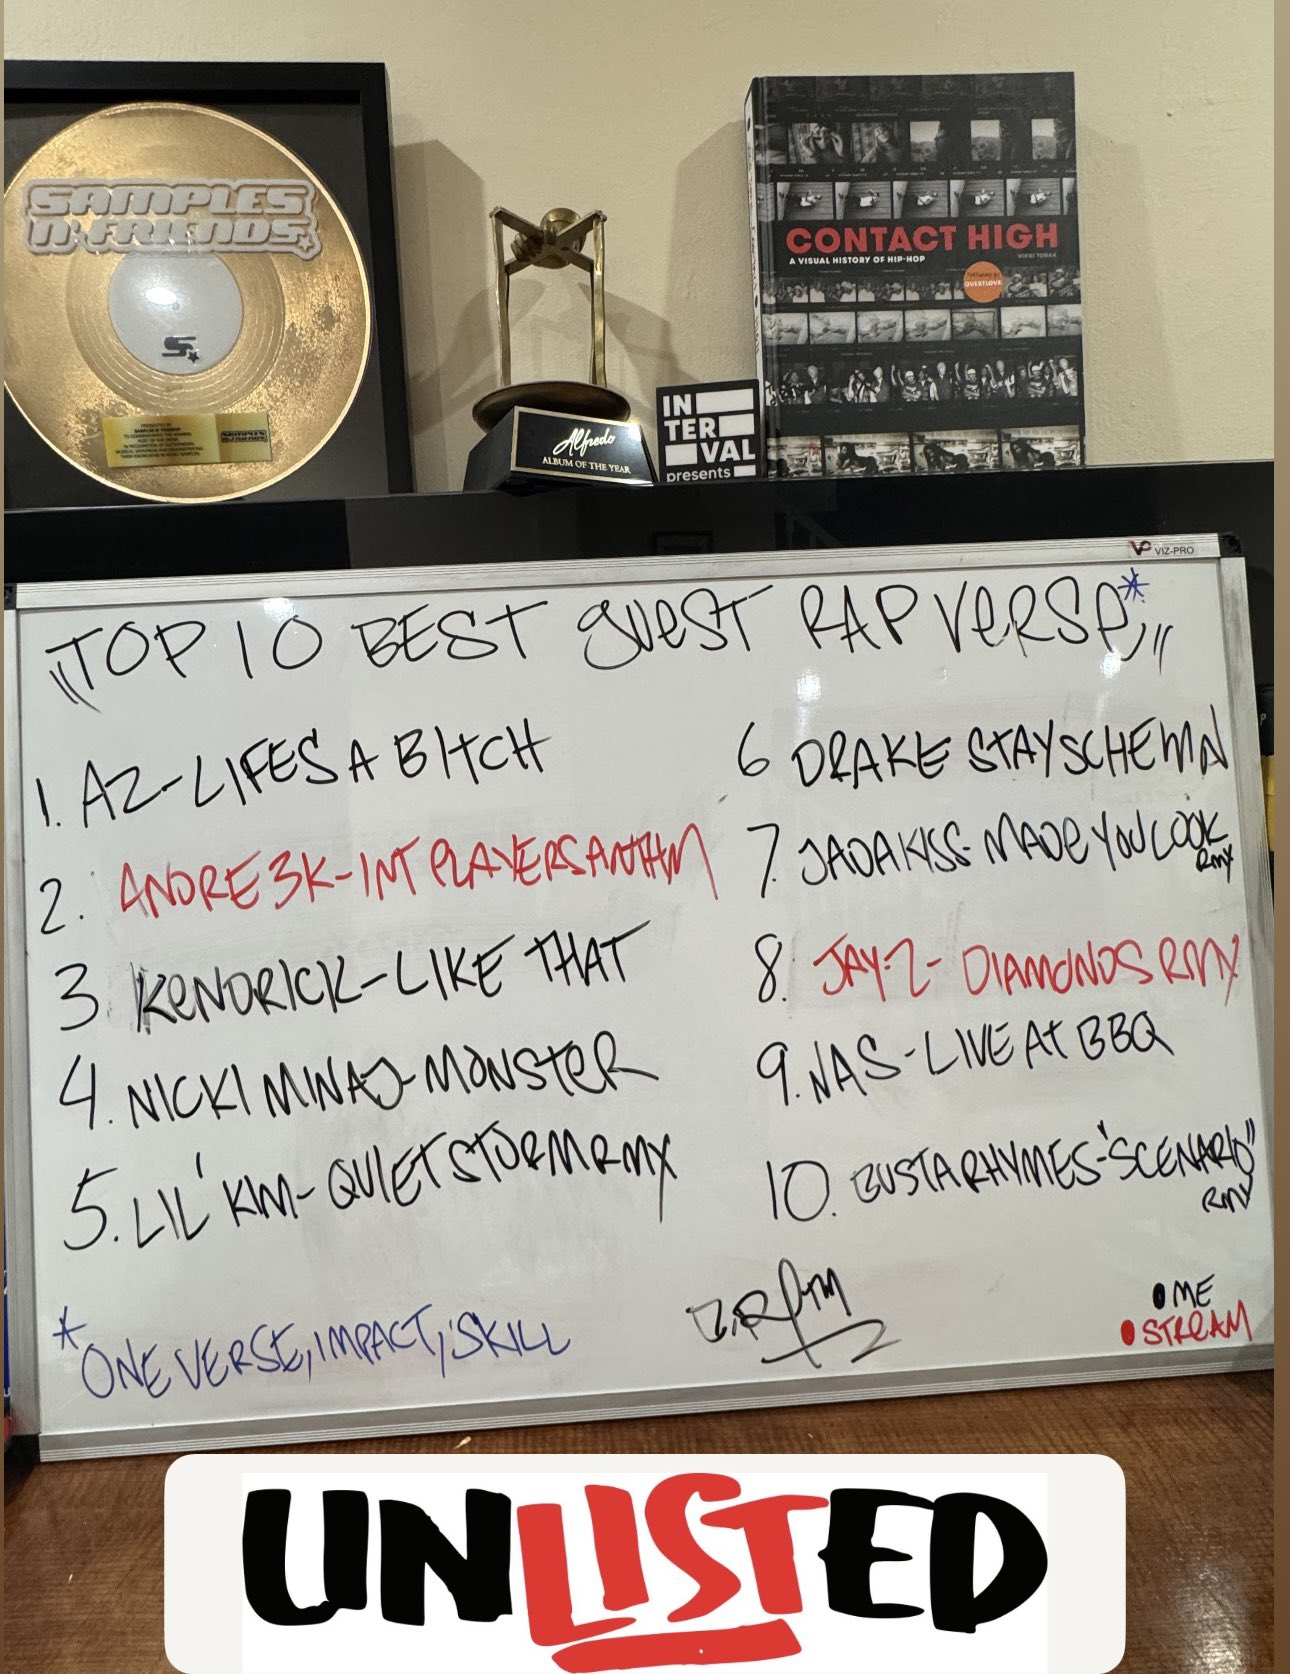 SAMPLES
N' FRIENDS
PRESENTED BY
SAMPLES N' FRIENDS
SAMPLES
N' FRIENDS
Alfredo
ALBUM OF THE YEAR
IN
TER
VAL
presents
CONTACT HIGH
A VISUAL HISTORY OF HIP-HOP
VIKKI TOBAK
QUESTLOVE
VIZ-PRO
"TOP 10 BEST GUEST RAP VERSE"*
1. AZ-LIFES A BITCH
2. ANDRE 3K-INT PLAYERS ANTHM
3 KENDRICK-LIKE THAT
4. NICKI MINAJ-MONSTER
5. LIL' KIM-QUIET STORM RMX
6 DRAKE STAY SCHEMN
7. JADAKISS-MADE YOU LOOK
RMX
8. JAY-Z-DIAMONDS RMX
9. NAS-LIVE AT BBQ
10. BUSTA RHYMES-"SCENARIO"
RMX
*ONE VERSE, IMPACT, SKILL
ME
STREAM
UNLISTED